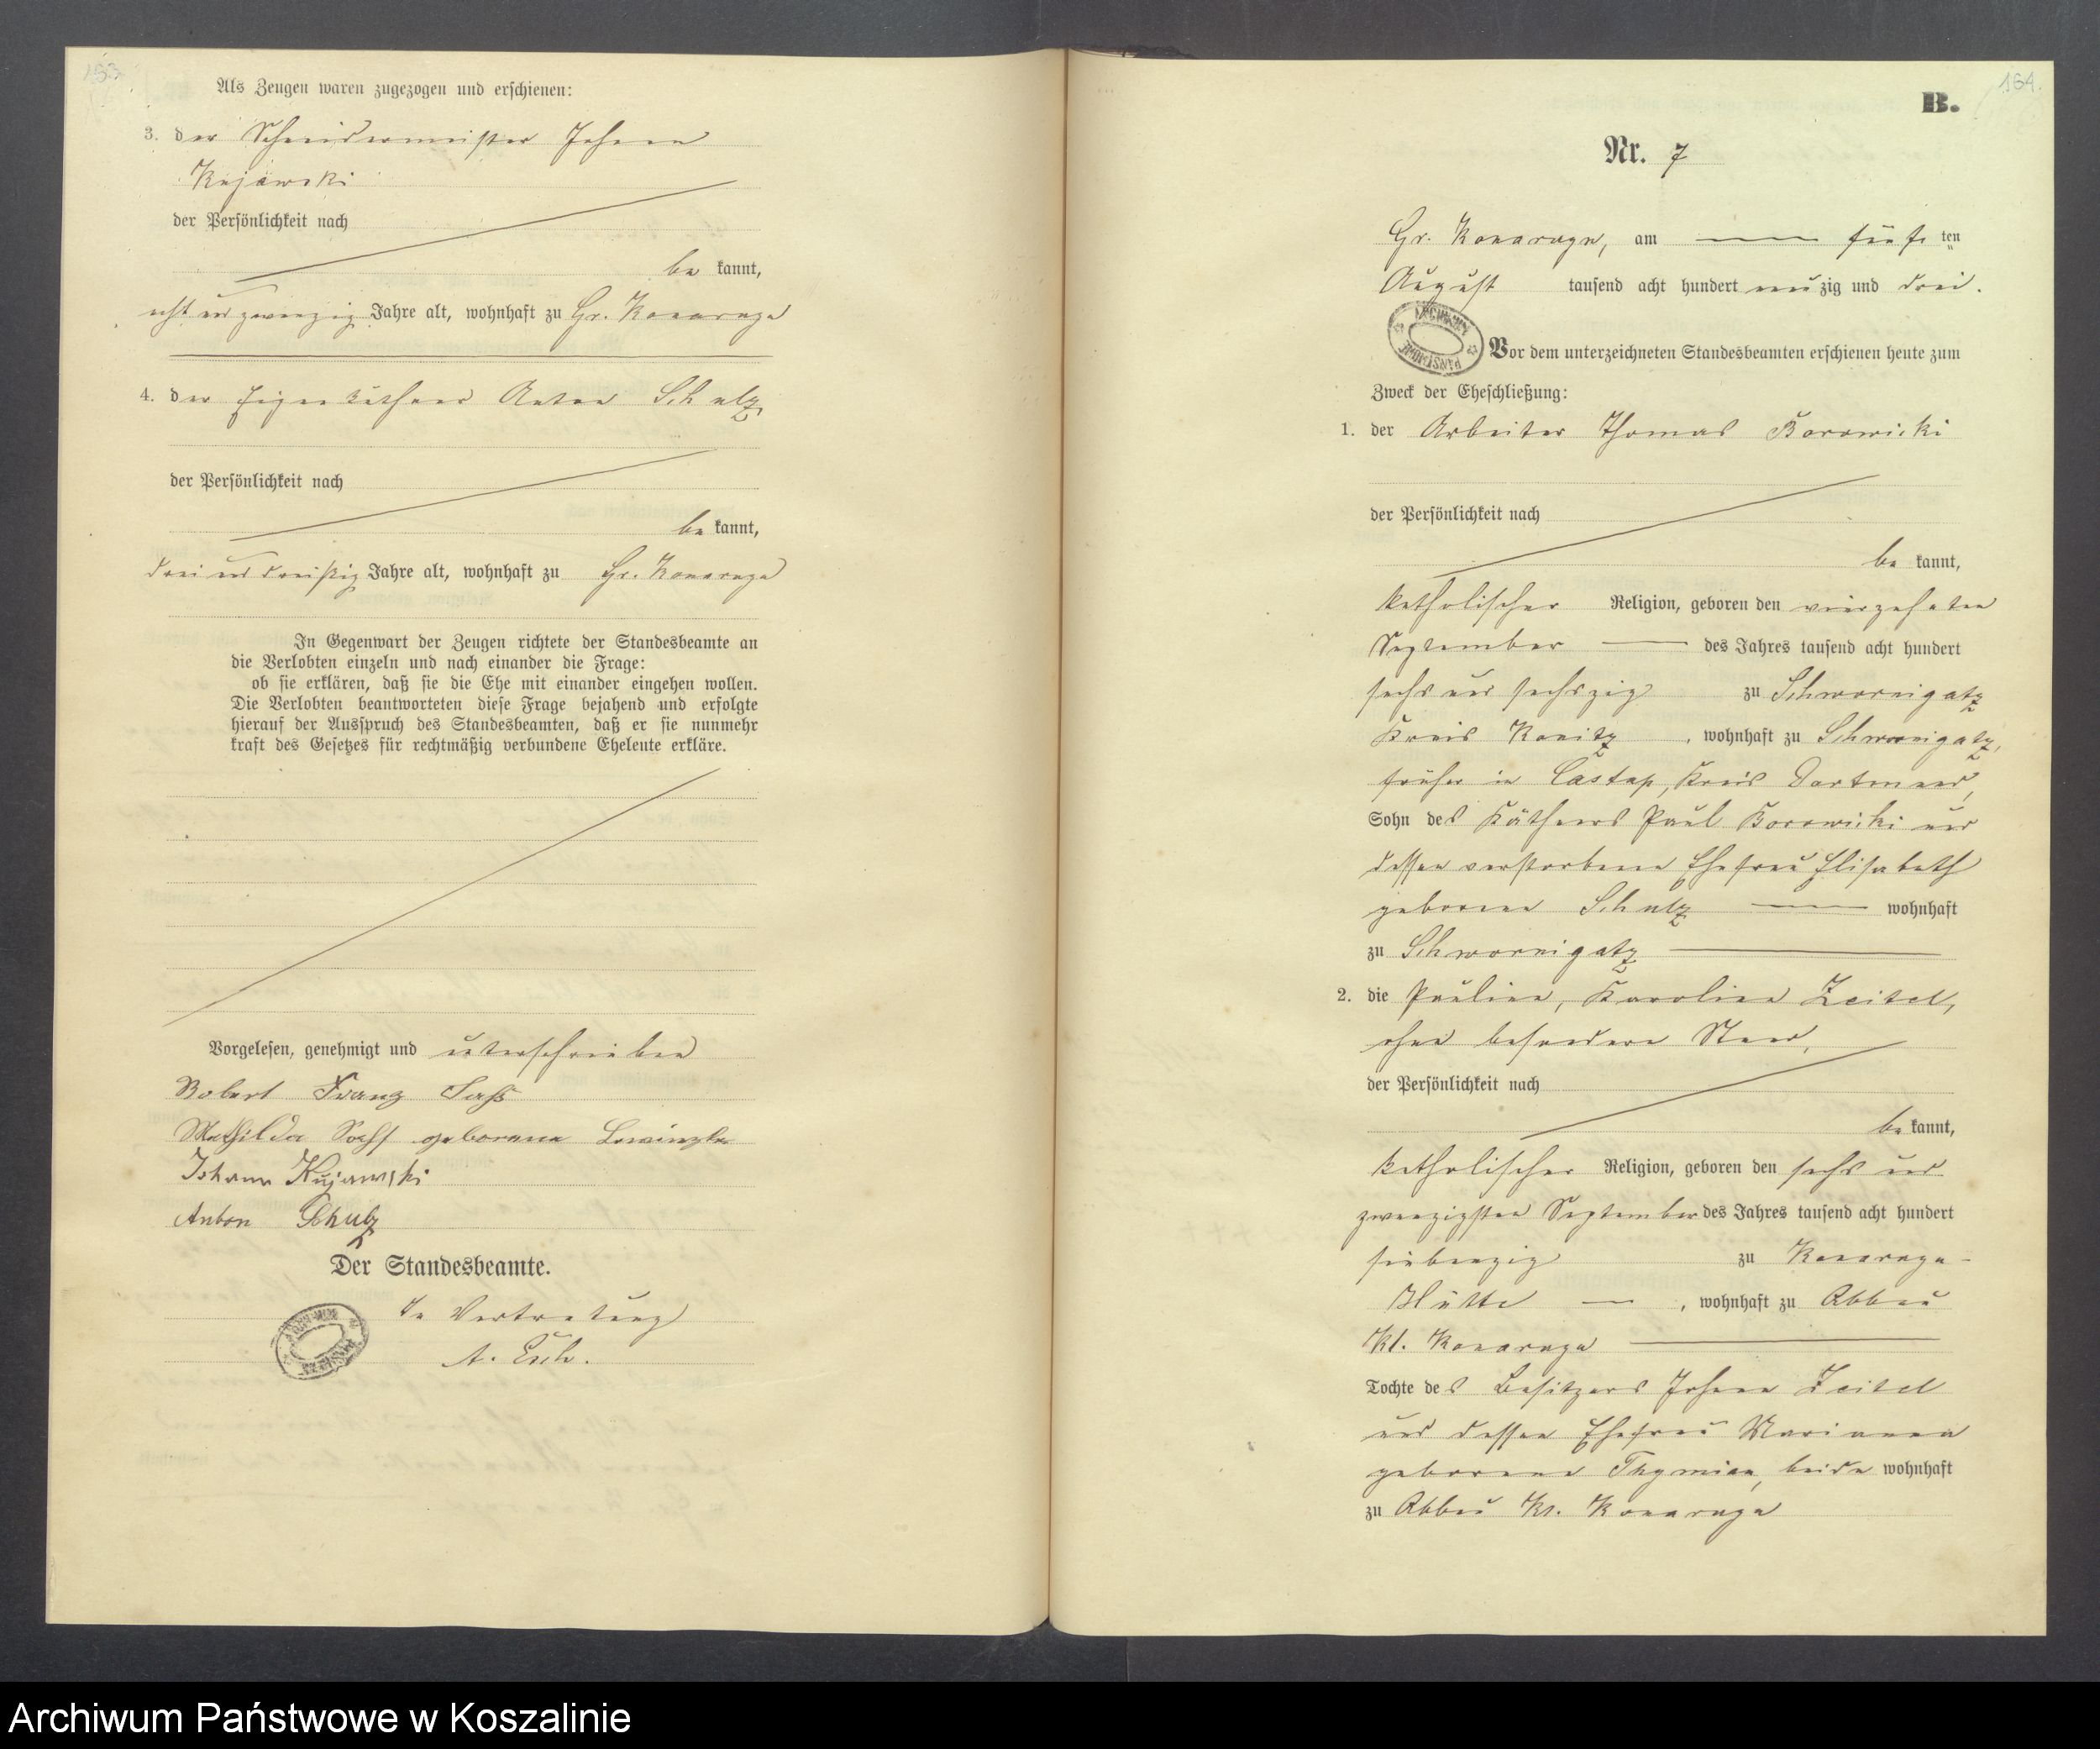 153
Als Zeugen waren zugezogen und erschienen:
3. der Schneidermeister Johann
Kujawski
der Persönlichkeit nach
be kannt,
acht und zwanzig Jahre alt, wohnhaft zu Gr. Konarczyn
4. der Eigenkäthner Anton Schulz
der Persönlichkeit nach
be kannt,
drei und dreißig Jahre alt, wohnhaft zu Gr. Konarczyn
In Gegenwart der Zeugen richtete der Standesbeamte an
die Verlobten einzeln und nach einander die Frage:
ob sie erklären, daß sie die Ehe mit einander eingehen wollen.
Die Verlobten beantworteten diese Frage bejahend und erfolgte
hierauf der Ausspruch des Standesbeamten, daß er sie nunmehr
kraft des Gesetzes für rechtmäßig verbundene Eheleute erkläre.
Vorgelesen, genehmigt und unterschrieben
Robert Franz Saß
Mathilda geborene
Johann Kujawski
Anton Schulz
Der Standesbeamte.
In Vertretung
A.
154.
B.
Nr. 7
Gr. Konarczyn, am fünf ten
August tausend acht hundert neunzig und drei.
ARCHIWUM PAŃSTWOWE
Vor dem unterzeichneten Standesbeamten erschienen heute zum
Zweck der Eheschließung:
1. der Arbeiter Thomas Borowicki
der Persönlichkeit nach
be kannt,
katholischer Religion, geboren den vierzehnten
September des Jahres tausend acht hundert
sechs und sechszig zu Schwornigatz
Kreis Konitz, wohnhaft zu Schwornigatz,
früher in Castrop, Kreis Dortmund,
Sohn des Käthners Paul Borowicki und
dessen verstorbene Ehefrau Elisabeth
geborene Schulz wohnhaft
zu Schwornigatz
2. die Pauline, Karoline Zeitel,
ohne besonderen Stand,
der Persönlichkeit nach
be kannt,
katholischer Religion, geboren den sechs und
zwanzigsten September des Jahres tausend acht hundert
siebenzig zu Konarczyn-
Hütte, wohnhaft zu Abbau
Kl. Konarczyn
Tochte des Besitzers Johann Zeitel
und dessen Ehefrau Marianna
geborene Thymian, beide wohnhaft
zu Abbau Kl. Konarczyn
Archiwum Państwowe w Koszalinie